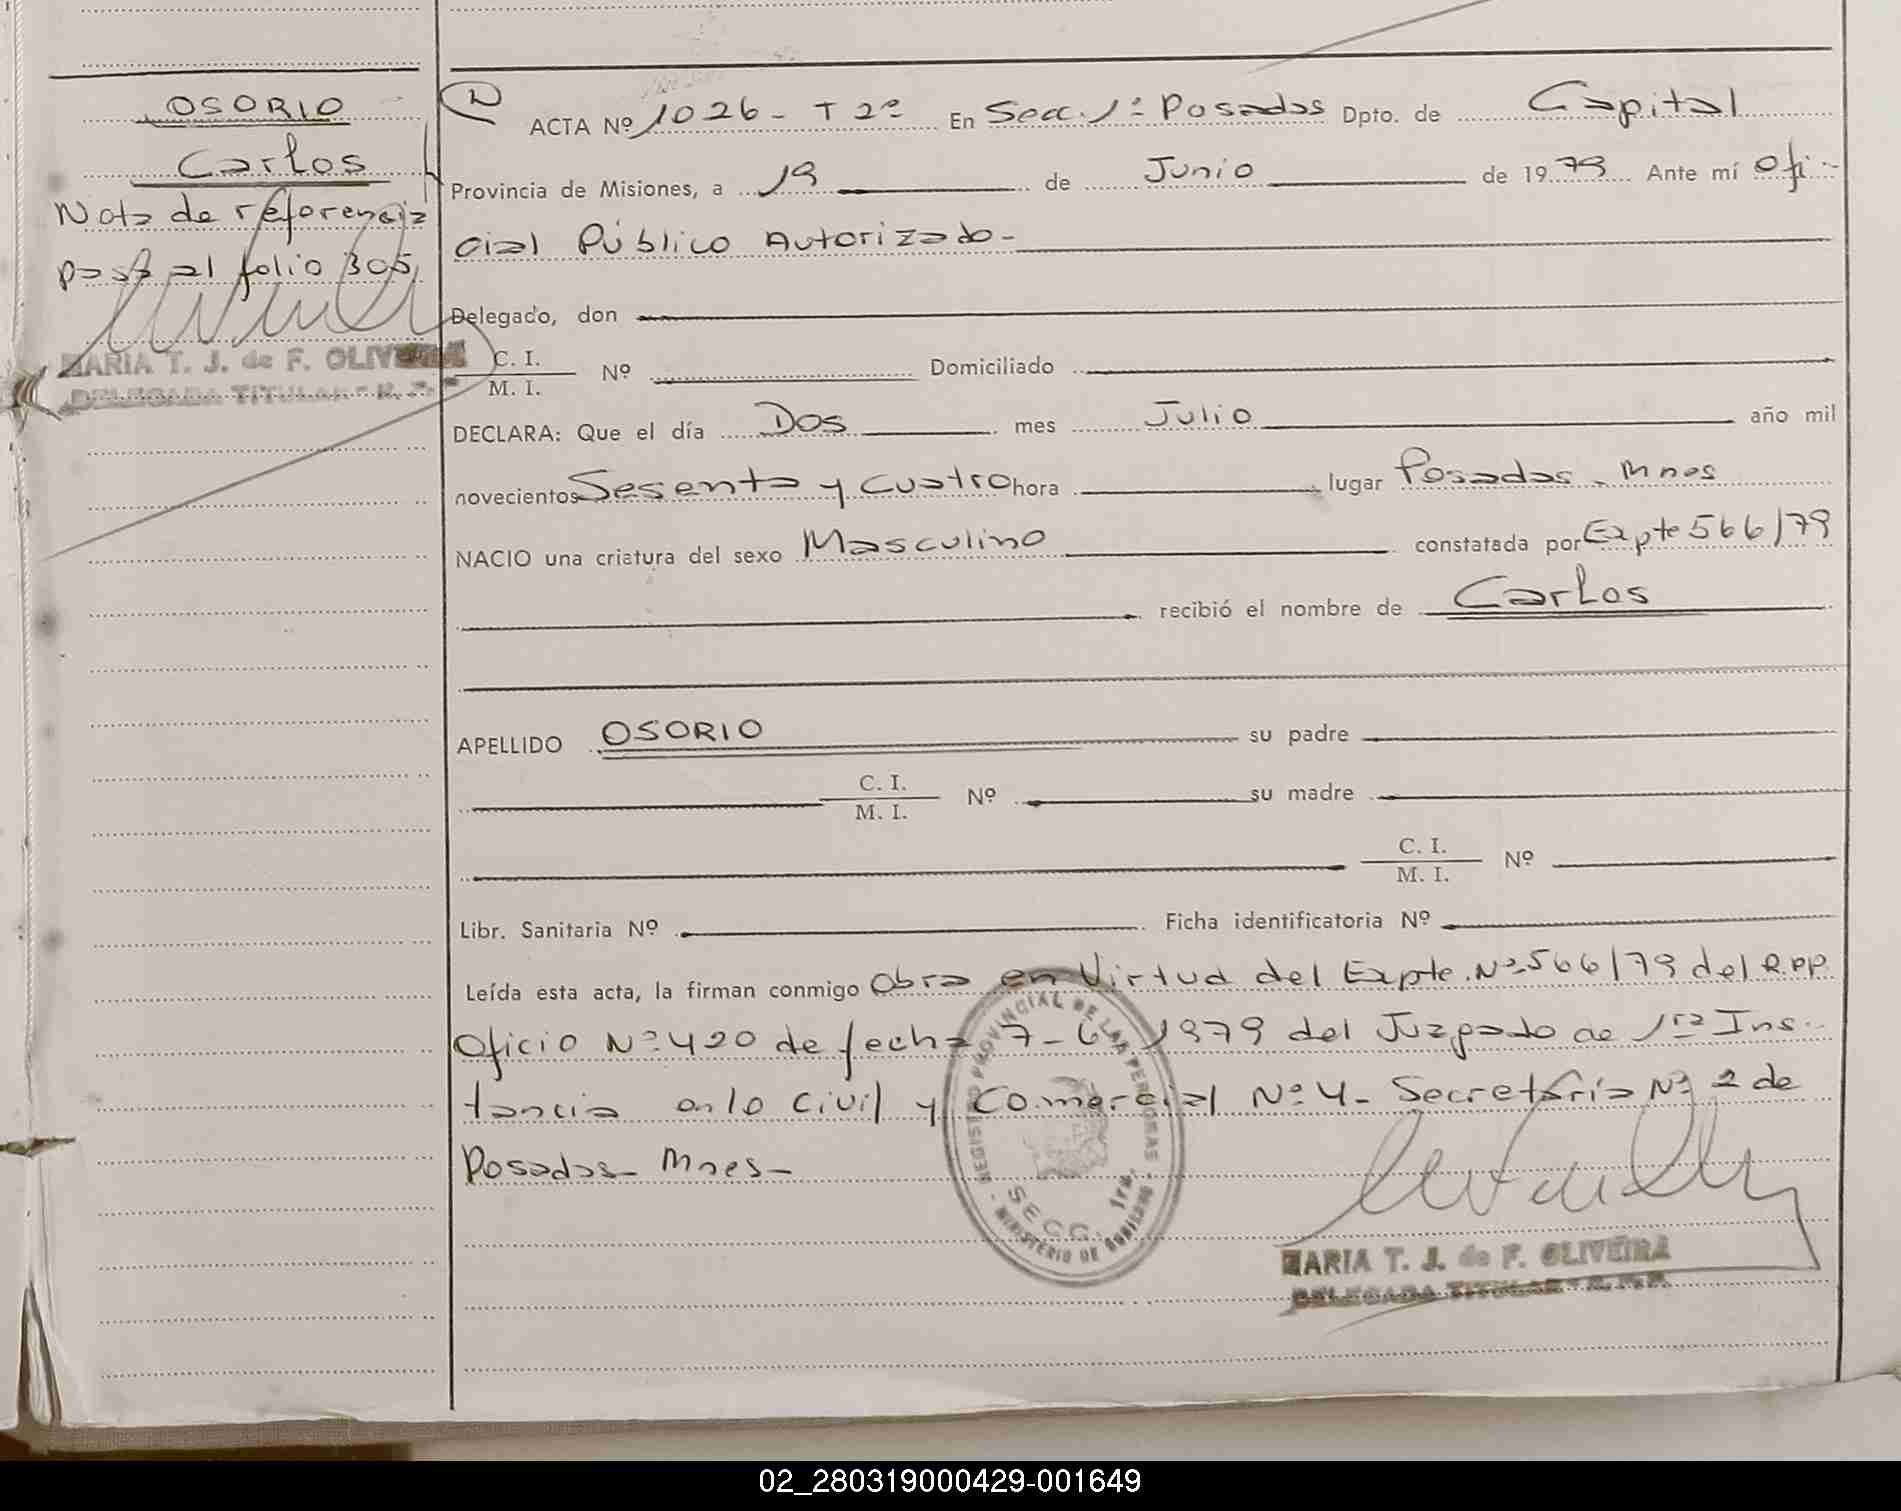 OSORIO
Carlos
Nota de referencia
pasa al folio 305
MARIA T. J. de F. OLIVEIRA
DELEGADA TITULAR - R. P. P.
N
ACTA Nº 1026 - T 2º En Secc. 1ª Posadas Dpto. de Capital
Provincia de Misiones, a 19 de Junio de 1979 Ante mí Ofi-
cial Público Autorizado -
Delegado, don
C. I.
M. I. Nº Domiciliado
DECLARA: Que el día Dos mes Julio año mil
novecientos Sesenta y Cuatro hora lugar Posadas - Mnes
NACIO una criatura del sexo Masculino constatada por Expte 566/79
recibió el nombre de Carlos
APELLIDO OSORIO su padre
C. I.
M. I. Nº su madre
C. I.
M. I. Nº
Libr. Sanitaria Nº Ficha identificatoria Nº
Leída esta acta, la firman conmigo Obra en Virtud del Expte. Nº 566/79 del R.P.P.
Oficio Nº 420 de fecha 7-6-1979 del Juzgado de 1ra Ins-
tancia en lo Civil y Comercial Nº 4 - Secretaría Nº 2 de
Posadas - Mnes -
REGISTRO PROVINCIAL DE LAS PERSONAS
SECC. 1ra.
MINISTERIO DE GOBIERNO
MARIA T. J. de F. OLIVEIRA
DELEGADA TITULAR - R. P. P.
02_280319000429-001649